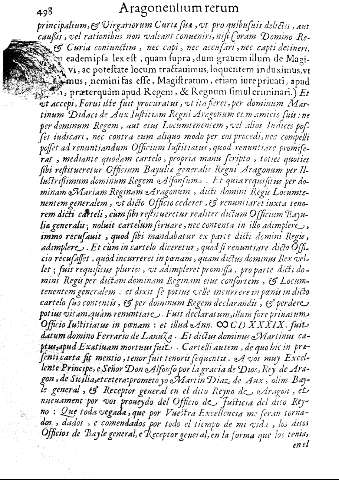 498 Aragonensium rerum
principalium, & Virgariorum Curiæ suæ, vt pro quibusuis delictis, aut
causis, vel rationibus non valeant conueniri, nisi Coram Domino Re-
& Curia coniunctim, nec capi, nec accusari, nec capti detineri.
eademipsa lex est, quam, supra dum grauem illum de Magi-
vi, ac potestate locum tractauimus, loquentem induximus. vt
mus, neminifas esse, Magistratum, etiam iure priuari, apud
præterquàm apud Regem, & Regnum simul coniunctim.) Et
vt accepi, Forus iste fuit procuratus, vt ita fieret, per dominum Martin
num Didaci de Aux Iustitiam Regni Aragonum et m amicis suis: ne
per dominum Regem, aut eius Locumtenentem, vel alios Iudices pos-
set iudicari, nec contra eum aliquo modo per eos procedi, nec compelli
posset ad renuntiandum Officium Iustitiatus, quod renuntiare promise-
rat, mediante quodam cartelo, propria manu scripto, toties quoties
sibi restitueretur Officium Bayuliæ generalis Regni Aragonum per Il-
lustrissimum dominum Regem Alfonsum. Et quia requisitus per do-
minam Mariam Reginam Aragonum, dicti domini Regis Locumte-
nentem generalem, vt dicto Officio cederet, & renuntiaret iuxta teno-
rem dicti carteli, cum sibi restitueretur realiter dictum Officium Bayu-
liæ generalis; noluit cartelum seruare, nec contenta in illo adimplere,
immo recusauit, quod sibi mandabatur ex parte dicti domini Regis,
adimplere. Et cùm in cartelo diceretur, quod si renuntiare dicto Offi-
cio recusasset, quòd incurreret in pœnam, quam dictus dominus Rex vel-
let; fuit requisitus pluries, vt adimpleret promissa, pro parte dicti do-
mini Regis per dictam dominam Reginam eius consortem, & Locum-
tenentem generalem. et dixit se potiùs velle incurrere in pœnis in dicto
cartelo suo contentis, & per dominum Regem declarandis, & perdere
potiùs vitam, quàm renuntiare. Fuit declaratum, illum fore priuatum
Officio Iustitiatus in pœnam: et illud Ann. ∞CDXXXIX. fuit
datum domno Ferrario de Lanuça. Et dictus dominus Martinus ca-
ptus, apud Exatiuam mortuus fuit. Cartelli autem, de quo hic in præ-
senti carta fit mentio, tenor fuit tenoris sequentis. A vos muy Excel-
lente Principe, e Señor Don Alfonso por la gracia de Dios, Rey de Ara-
gon, de Sicilia, et cetera prometo yo Martin Diaz de Aux, olim Bay-
le general, & Receptor general en el dito Reyno de Aragon, et
nueuament por vos proueydo del Officio de Iusticia del dito Rey-
no: Que toda vegada, que por Vuestra Excellencia me seran torna-
dos, dados, e comendados por todo el tiempo de mi vida, los ditos
Officios de Bayle general, e Receptor general, en la forma que los tenia,
en el